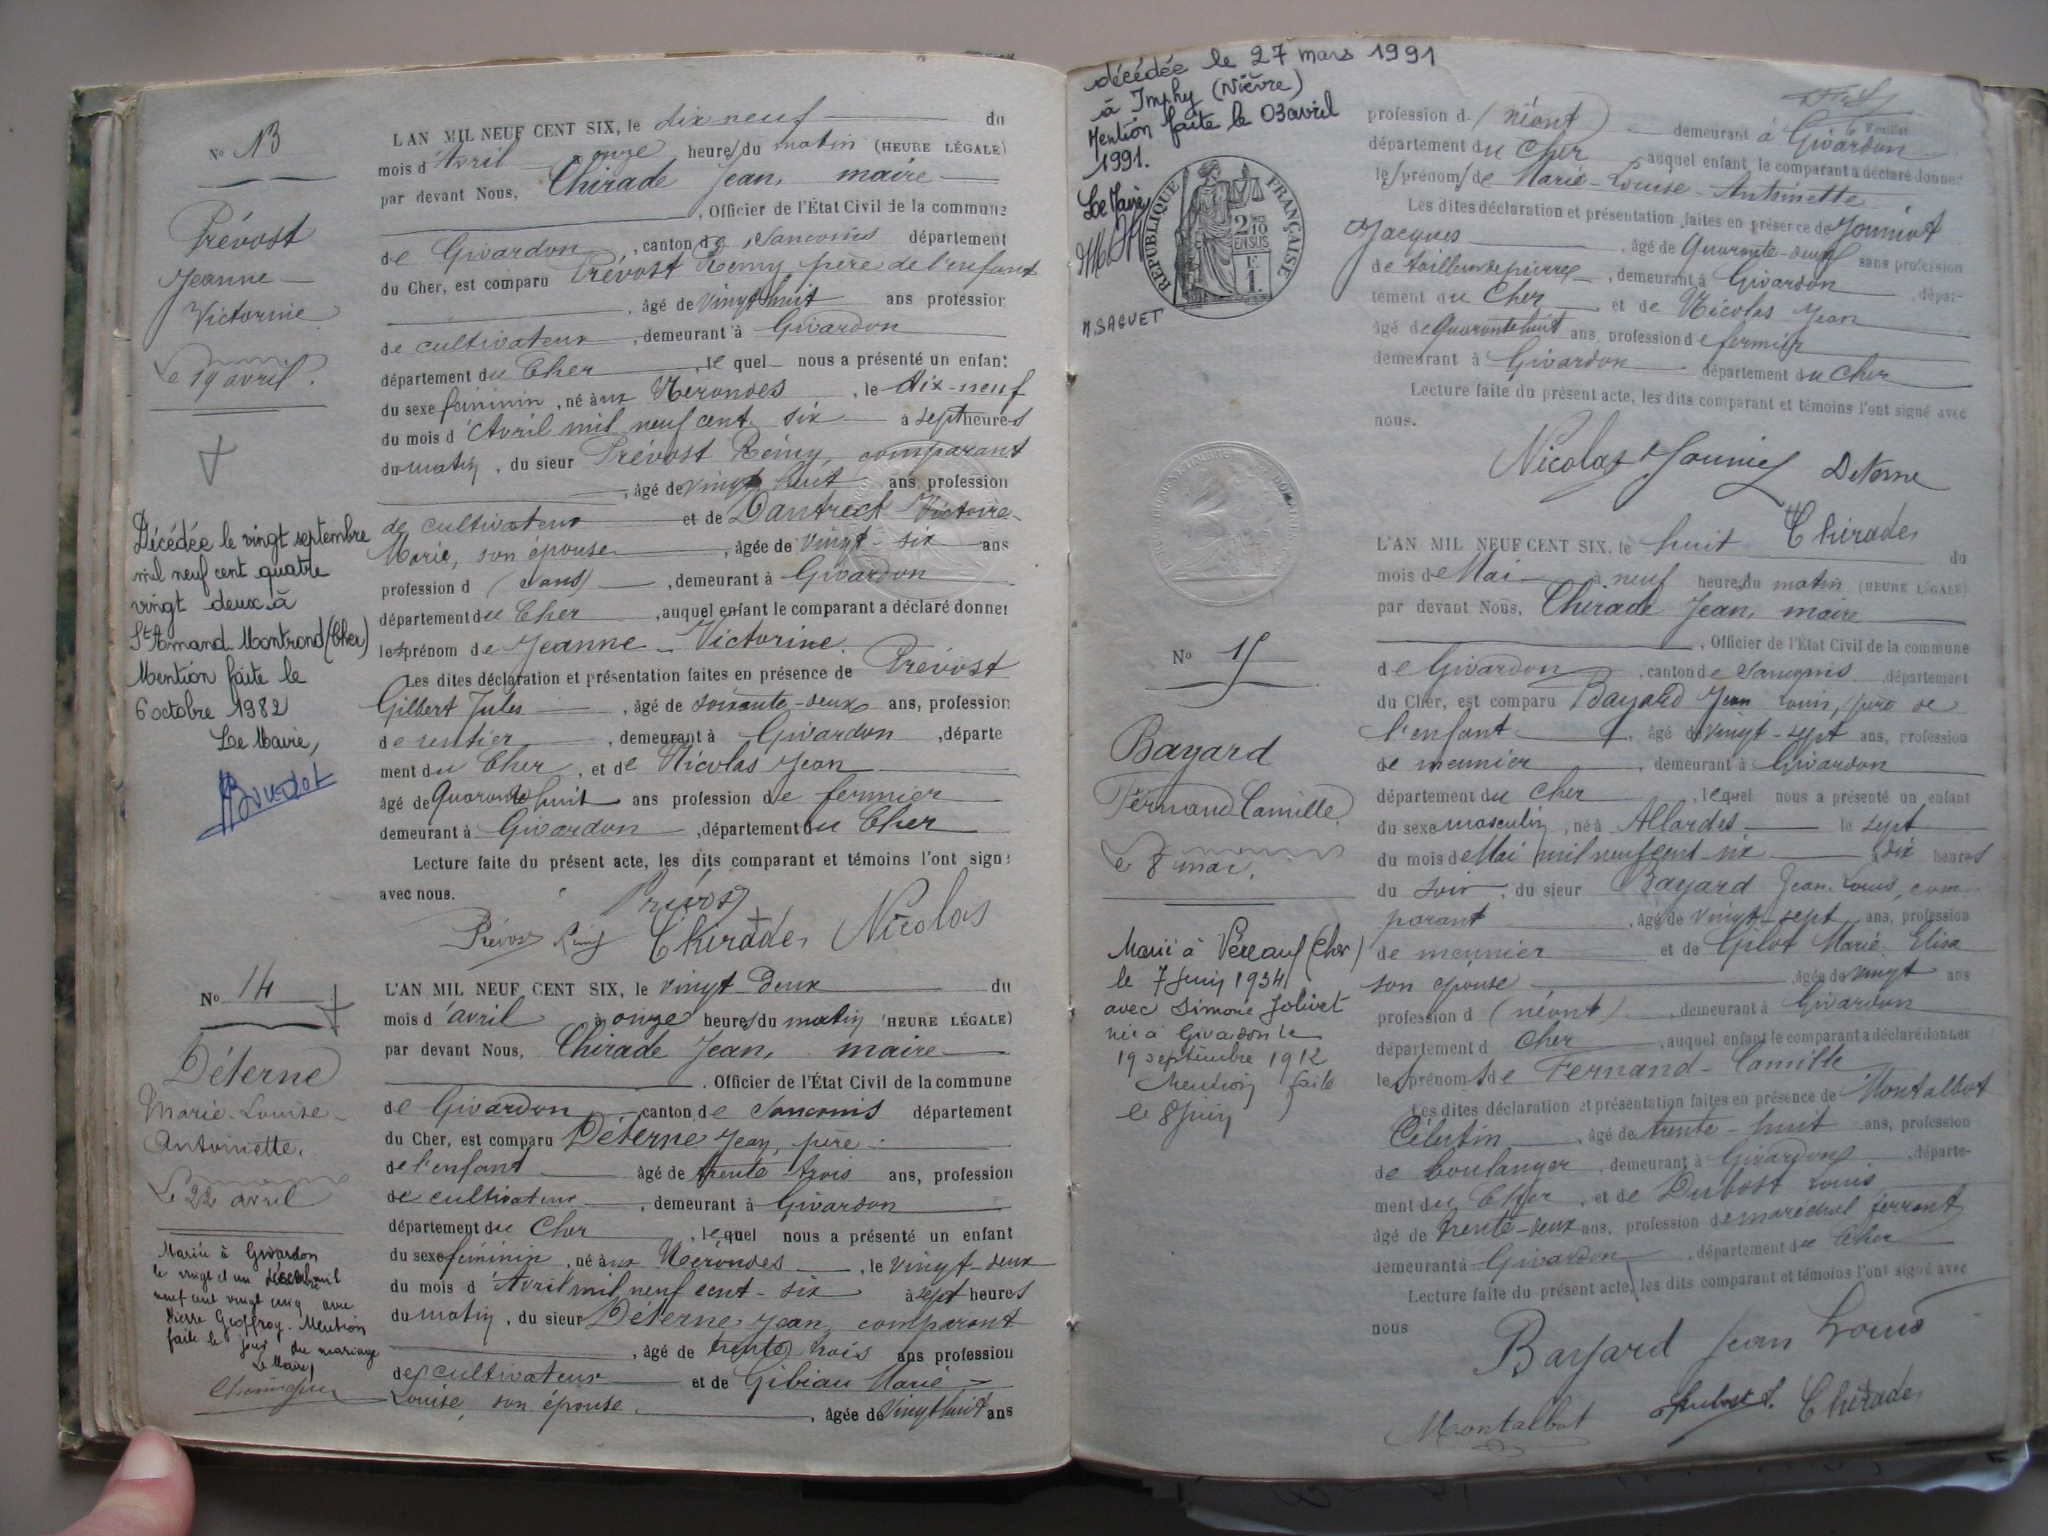 No 13
Prévost
Jeanne
Victorine
Le 19 avril.
Décédée le vingt septembre
mil neuf cent quatre
vingt deux à
St Amand-Montrond (Cher)
Mention faite le
6 octobre 1982
Le Maire,
L'AN MIL NEUF CENT SIX, le dix neuf du
mois d'Avril à onze heures du matin (HEURE LÉGALE)
par devant Nous, Chirade Jean, maire
, Officier de l'État Civil de la commune
de Givardon, canton de Sancoins département
du Cher, est comparu Prévost Rémy père de l'enfant
, âgé de vingt huit ans profession
de cultivateur, demeurant à Givardon
département du Cher, lequel nous a présenté un enfant
du sexe féminin, né aux Nerondes, le dix-neuf
du mois d'Avril mil neuf cent six à sept heures
du matin, du sieur Prévost Rémy, comparant
, âgé de vingt huit ans, profession
de cultivateur et de Dantrect Victoire-
Marie, son épouse, âgée de vingt-six ans
profession d (sans), demeurant à Givardon
département du Cher, auquel enfant le comparant a déclaré donner
les prénom de Jeanne-Victorine.
Les dites déclaration et présentation faites en présence de Prévost
Gilbert Jules, âgé de soixante-deux ans, profession
de rentier, demeurant à Givardon, départe
ment du Cher, et de Nicolas Jean
âgé de Quarante huit ans profession de fermier
demeurant à Givardon, département du Cher
Lecture faite du présent acte, les dits comparant et témoins l'ont signé
avec nous.
Prévost
Prévost Rémy Chirade Nicolas
No 14
Déterne
Marie-Louise-
Antoinette.
Le 22 avril
Mariée à Givardon
le vingt et un décembre mil
neuf cent vingt cinq avec
Pierre Geoffroy. Mention
faite le jour du mariage
Le Maire
L'AN MIL NEUF CENT SIX, le vingt deux du
mois d'avril à onze heures du matin (HEURE LÉGALE)
par devant Nous, Chirade Jean, maire
, Officier de l'État Civil de la commune
de Givardon canton de Sancoins département
du Cher, est comparu Déterne Jean, père
de l'enfant âgé de trente trois ans, profession
de cultivateur, demeurant à Givardon
département du Cher, lequel nous a présenté un enfant
du sexe féminin, né aux Nérondes, le vingt-deux
du mois d'Avril mil neuf cent-six à sept heures
du matin, du sieur Déterne Jean, comparant
, âgé de trente trois ans profession
de cultivateur et de Gibiau Marie
Louise, son épouse, âgée de vingt huit ans
décédée le 27 mars 1991
à Imphy (Nièvre)
Mention faite le 03 avril
1991.
Le Maire
M SAGUET
RÉPUBLIQUE FRANÇAISE
2/10 EN SUS
1 F.
profession d (néant) demeurant à Givardon
département du Cher auquel enfant le comparant a déclaré donner
les prénoms de Marie-Louise-Antoinette
Les dites déclaration et présentation faites en présence de Jouniot
Jacques, âgé de Quarante-deux ans profession
de tailleur de pierres, demeurant à Givardon, dépar-
tement du Cher et de Nicolas Jean
âgé de Quarante huit ans, profession de fermier
demeurant à Givardon département du Cher
Lecture faite du présent acte, les dits comparant et témoins l'ont signé avec
nous.
Nicolas Déterne
Chirade
No 15
Bayard
Fernand Camille
Le 8 mai.
Marié à Vereaux (Cher)
le 7 Juin 1934
avec Simone Jolivet
née à Givardon le
19 septembre 1912
Mention faite
le 8 Juin
L'AN MIL NEUF CENT SIX, le huit du
mois de Mai à neuf heures du matin (HEURE LÉGALE)
par devant Nous, Chirade Jean, maire
, Officier de l'État Civil de la commune
de Givardon, canton de Sancoins, département
du Cher, est comparu Bayard Jean Louis, père de
l'enfant, âgé de vingt-sept ans, profession
de meunier, demeurant à Givardon
département du Cher, lequel nous a présenté un enfant
du sexe masculin, né à Allardes le sept
du mois de Mai mil neuf cent six à dix heures
du soir, du sieur Bayard Jean-Louis, com-
parant, âgé de vingt-sept ans, profession
de meunier et de Gilot Marie Elisa
son épouse, âgée de vingt ans
profession d (néant), demeurant à Givardon
département d Cher, auquel enfant le comparant a déclaré donner
les prénoms de Fernand-Camille
Les dites déclaration et présentation faites en présence de Montalbot
Célestin, âgé de trente-huit ans, profession
de boulanger, demeurant à Givardon, départe-
ment du Cher, et de Dubost Louis
âgé de trente-deux ans, profession de maréchal ferrant
demeurant à Givardon, département du Cher
Lecture faite du présent acte, les dits comparant et témoins l'ont signé avec
nous
Bayard Jean Louis
Montalbot Dubost L. Chirade